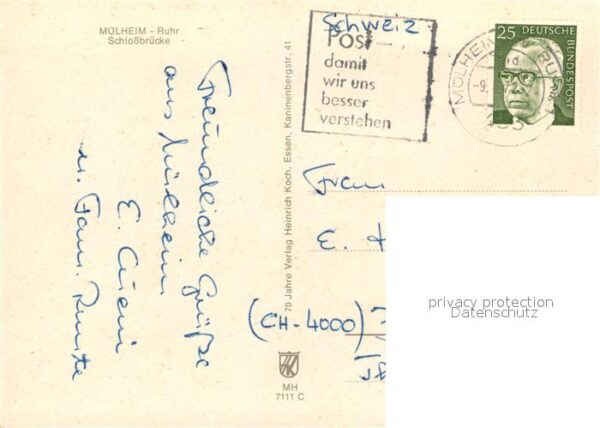 MÜLHEIM - Ruhr
Schloßbrücke
Freundliche Grüße
aus Mülheim
E.
u. Fam.
70 Jahre Verlag Heinrich Koch, Essen, Kaninenbergstr. 41
MH
7111 C
Schweiz
Post-
damit
wir uns
besser
verstehen
MÜLHEIM
25 DEUTSCHE
BUNDESPOST
Frau
E.
(CH-4000)
privacy protection
Datenschutz